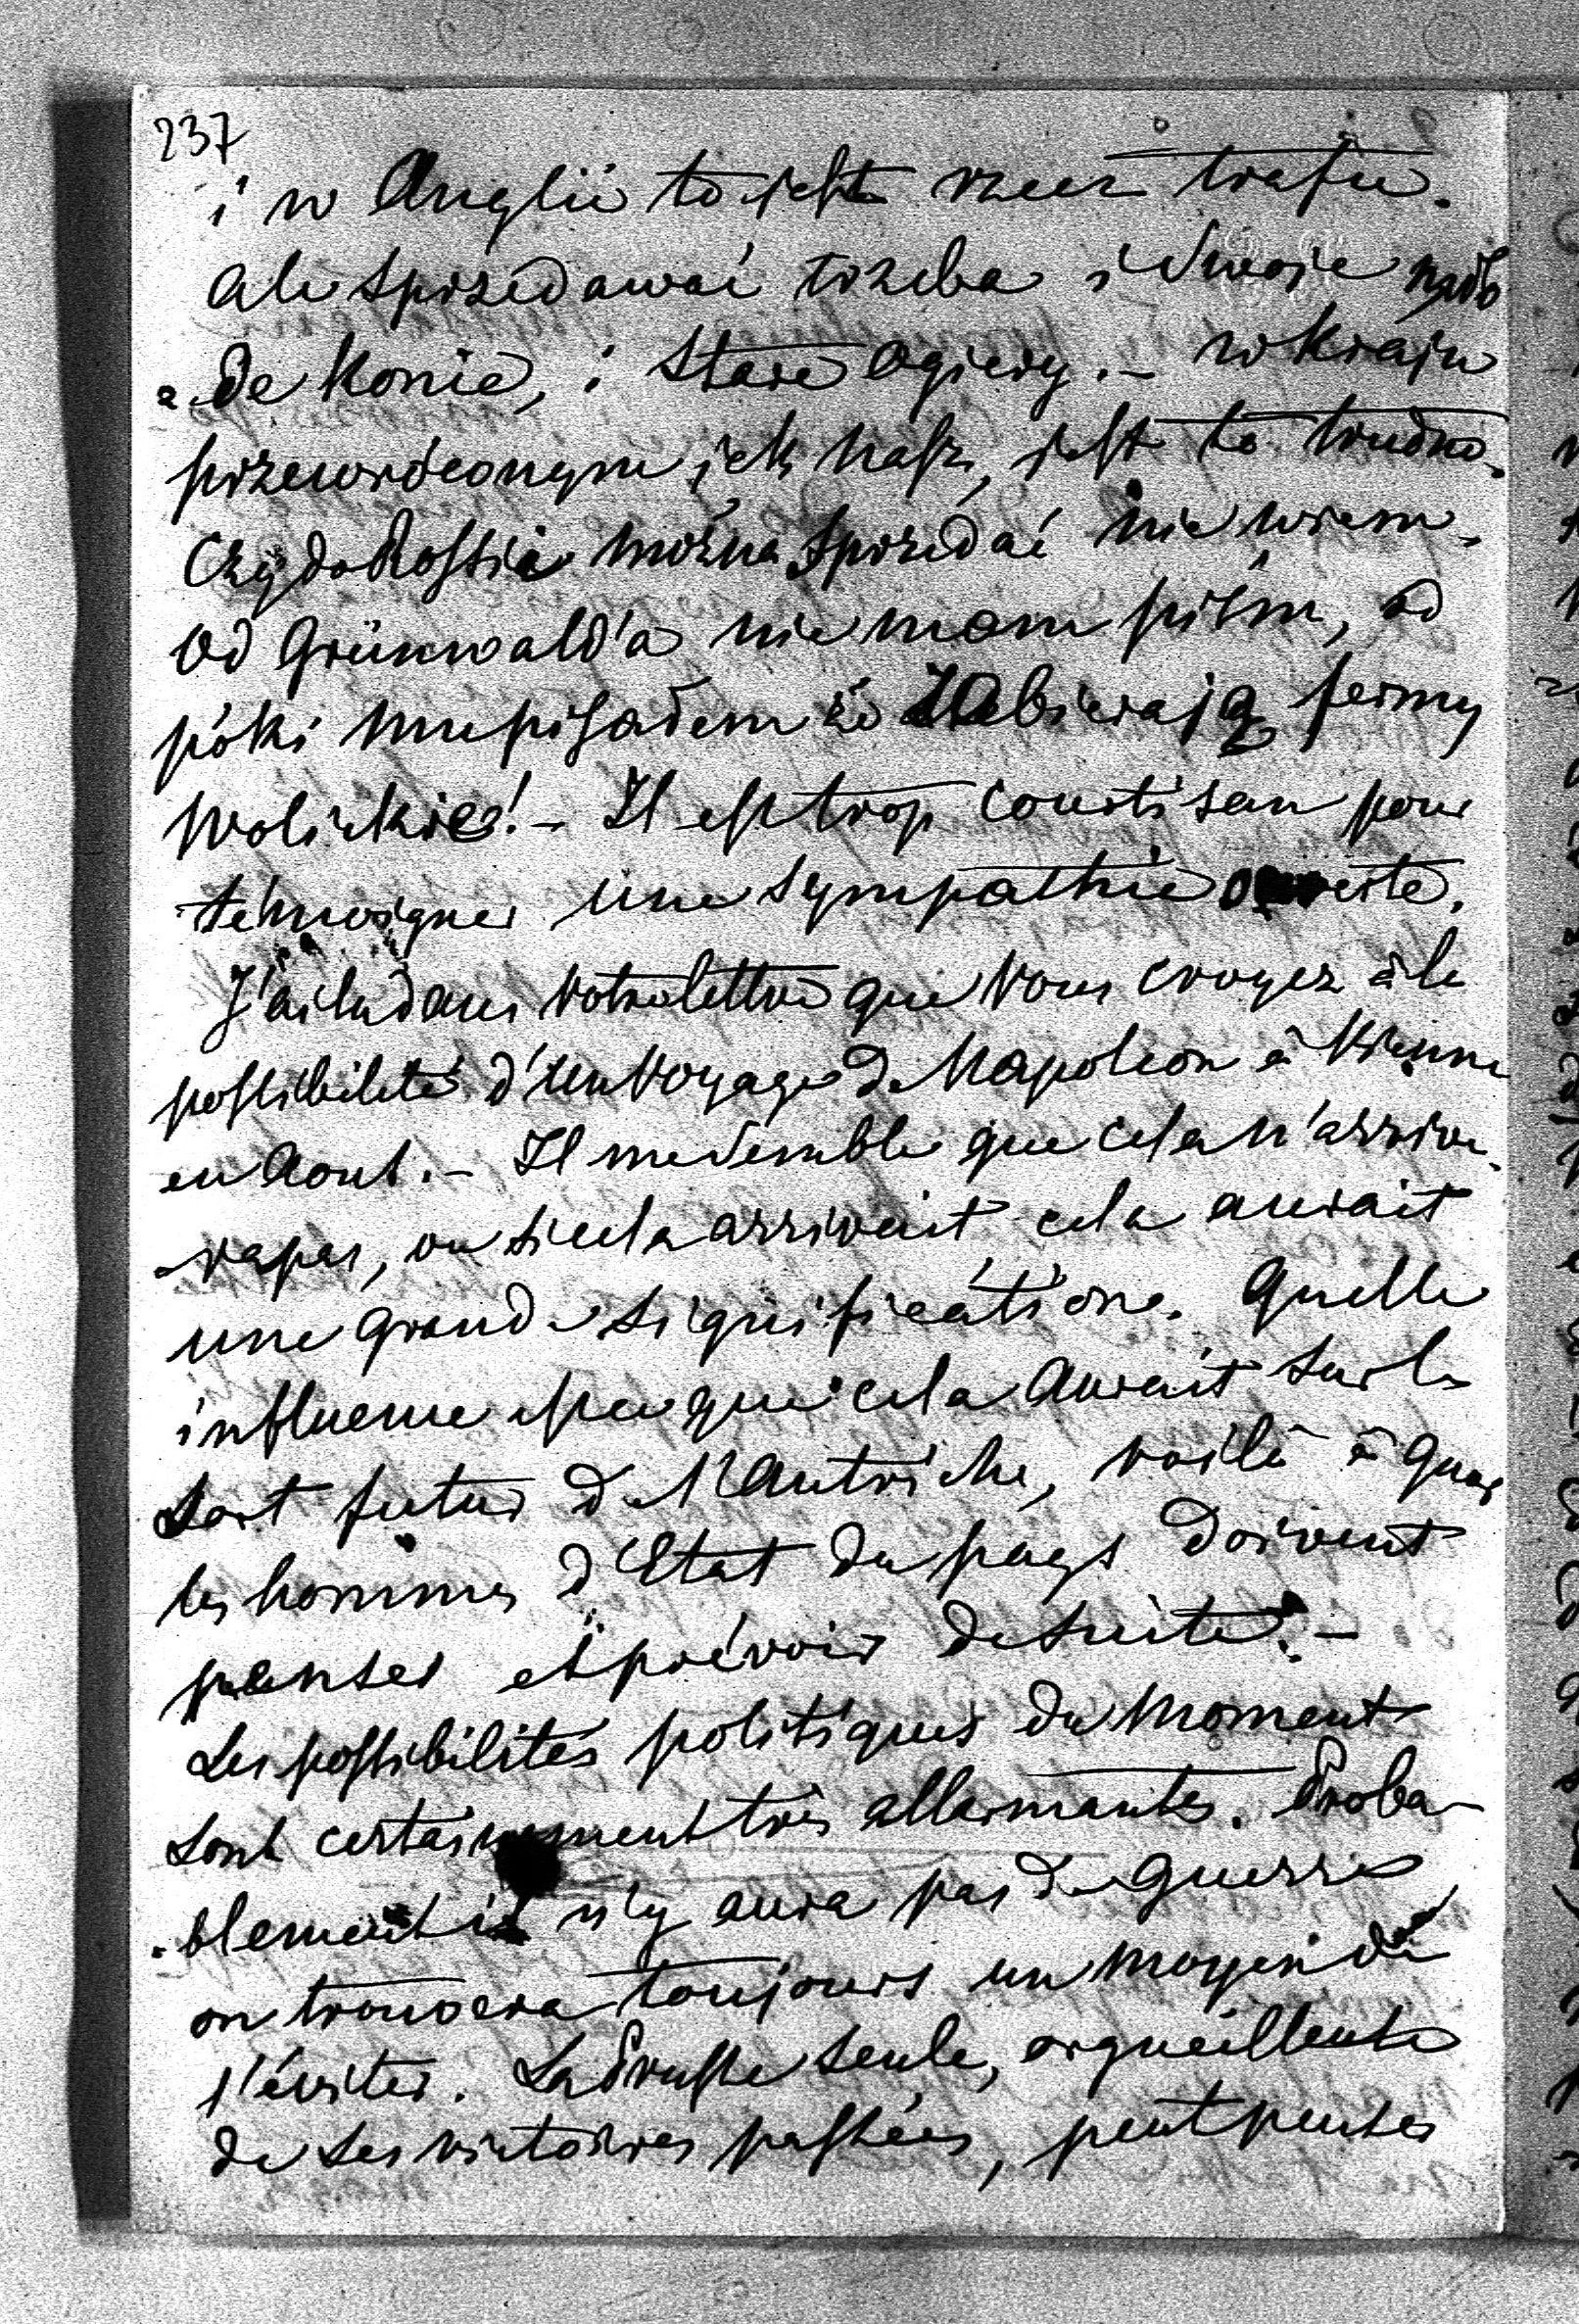 237
i w Anglii to jest rzecz trafu.
ale sprzedawać trzeba i swoje
de konie, i stare ogiery. – w kraju
przewróconym jak nasz, jest to trudno.
Czy do Rossie można sprzedać nie wiem.
od Grünwald'a nie mam pism, od
póki mu pisałem że zabierają fermy
Wolickie! – Il est trop courtisan pour
témoigner une sympathie ouverte.
J'ai lu dans votre lettre que vous croyez à la
possibilité d'un voyage de Napoleon à Vienne
en Aout. – Il me semble que cela n'arrive-
ra pas, ou si cela arrivait cela aurait
une grande signification. Quelle
influence que cela aurait sur le
sort futur de l'Autriche, voilà à quoi
les hommes d'Etat du pays doivent
penser et prévoir de suite. –
Les possibilités politiques du moment
sont certainement très allarmantes. Proba-
blement il n'y aura pas de guerre
on trouvera toujours un moyen de
l'éviter. La Prusse seule, orgueilleuse
de ses victoires passées, peut penser